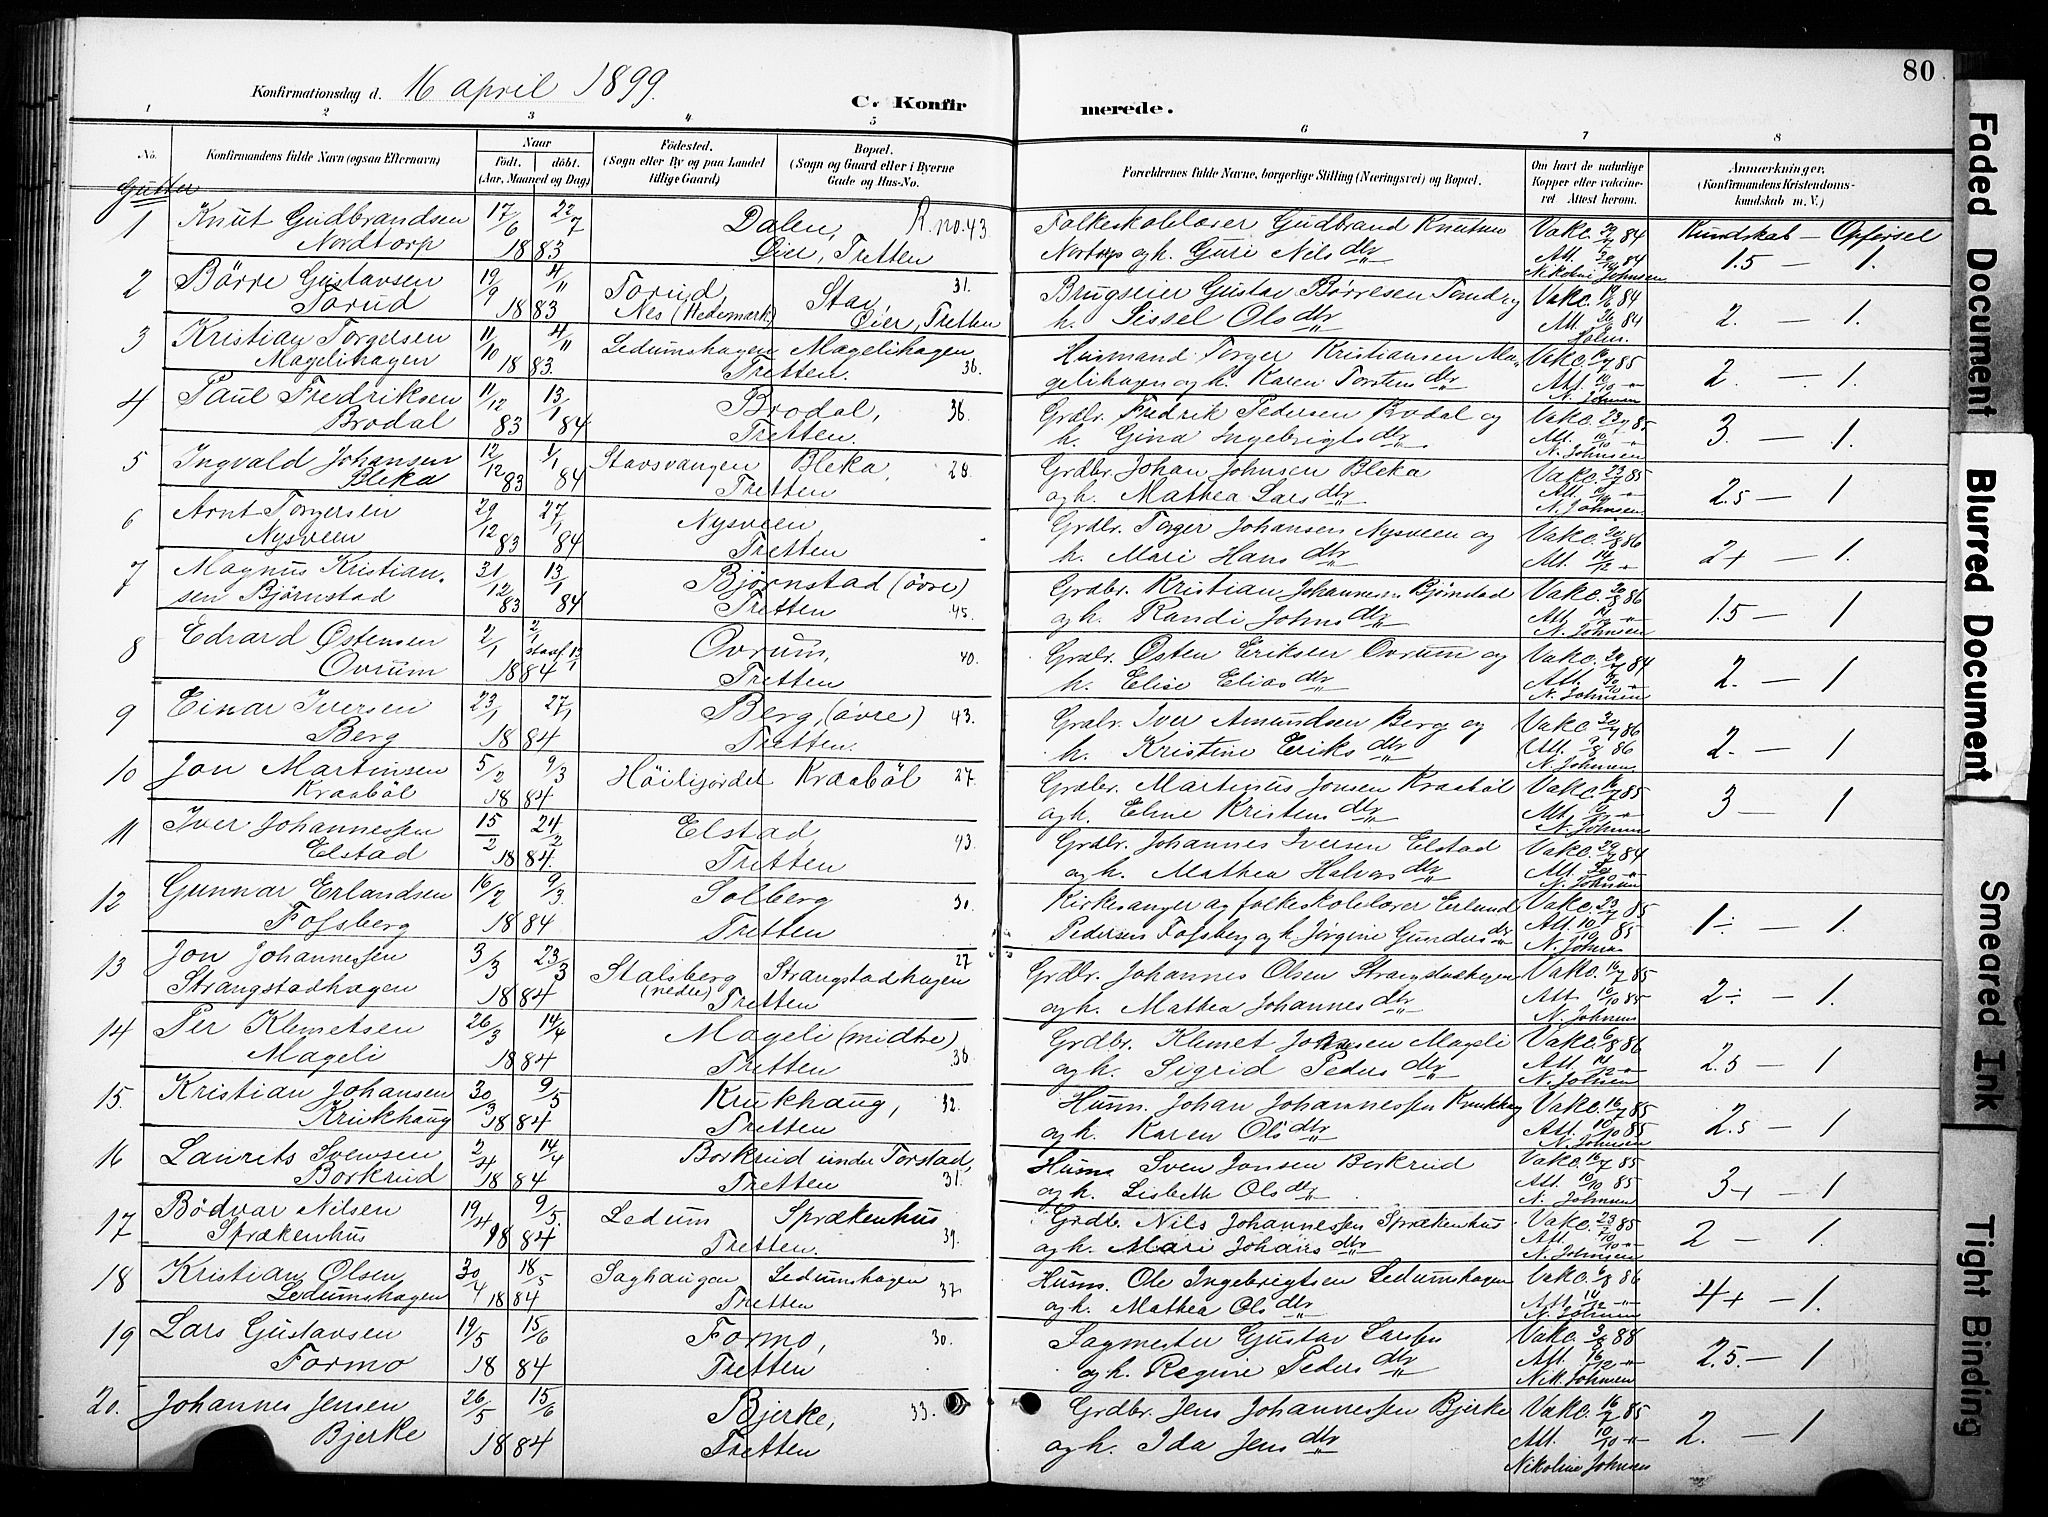 80
Konfirmationsdag d. 16 april 1899.
C. Konfirmerede.
1 2 3 4 5 6 7 8
No. Konfirmandens fulde Navn (ogsaa Efternavn) Naar født, døbt. (Aar, Maaned og Dag) Fødested. (Sogn eller By og paa Landet tillige Gaard) Bopæl. (Sogn og Gaard eller i Byerne Gade og Hus-No. Forældrenes fulde Navne, borgerlige Stilling (Næringsvei) og Bopæl. Om havt de naturlige Kopper eller vakcineret Attest herom. Anmærkninger. (Konfirmandens Kristendomskundskab m. V.)
Gutter
1 Knut Gudbrandsen 17/6 22/7 Dalen, R.no.43 Folkeskolelærer Gudbrand Knutsen Vakc. 84 Kundskab — Opførsel
Nordtorp 18 83 Øier, Tretten Nortorp og h. Guri Nilsdtr Att. 84 Nikoline Johnsen 1.5 — 1.
2 Börre Gustavsen 19/9 4/11 Torud Stav, 31. Brugseier Gustav Børresen Torud og Vakc. 84
Torud 18 83 Nes (Hedemark) Øier, Tretten h. Sissel Olsdtr Att. 84 Holm. 2. — 1.
3 Kristian Torgersen 11/10 4/11 Ledumshagen Magelihagen Husmand Torger Kristiansen Ma- Vakc. 85
Magelihagen 18 83. Tretten. 36. gelihagen og h. Karen Torstensdtr Att. N. Johnsen 2. — 1.
4 Paul Fredriksen 11/12 13/1 Brodal, 36. Grdbr. Fredrik Pedersen Brodal og Vakc. 85
Brodal 83 84 Tretten. h. Gina Ingebrigtsdtr Att. N. Johnsen 3. — 1.
5 Ingvald Johansen 12/12 1/1 Stavsvangen Bleka, 28. Grdbr. Johan Johnsen Bleka Vakc. 23/7 85
Bleka 83 84 Tretten og h. Mathea Larsdtr Att. N. Johnsen 2.5 — 1
6 Arnt Torgersen 29/12 27/1 Nysveen, Grdbr. Torger Johansen Nysveen og Vakc. 86
Nysveen 83 84 Tretten h. Mari Hansdtr Att. 14/12 2+ — 1.
7 Magnus Kristian- 31/12 13/1 Bjørnstad (övre) Grdbr. Kristian Johannesen Bjørnstad Vakc. 86
sen Bjørnstad 83 84 Tretten 45. og h. Randi Johnsdtr Att. N. Johnsen 1.5 — 1
8 Edvard Østensen 2/1 2/1 staaf. 13/1 Ovrum, 40. Grdbr. Østen Eriksen Ovrum og Vakc. 84
Ovrum 18 84 Tretten h. Elise Eliasdtr Att. N. Johnsen 2. — 1
9 Einar Iversen 23/1 27/1 Berg, (övre) 43. Grdbr. Iver Amundsen Berg og Vakc. 86
Berg 18 84 Tretten. h. Kristine Eriksdtr Att. 86 N. Johnsen. 2. — 1
10 Jon Martinsen 5/2 9/3 Höilijordet Kraaböl 27. Grdbr. Martinus Jonsen Kraaböl Vakc. 85
Kraaböl 18 84 og h. Eline Kristensdtr Att. N. Johnsen 3 — 1
11 Iver Johannessen 15/2 24/2 Elstad, 43. Grdbr. Johannes Iversen Elstad Vakc. 84
Elstad 18 84. Tretten og h. Mathea Halvorsdtr Att. N. Johnsen 2 — 1
12 Gunnar Erlandsen 16/2 9/3. Solberg 30. Kirkesanger og folkeskolelærer Erland Vakc. 23/7 85
Fossberg 18 84 Tretten Pedersen Fossberg og h. Jörgine Gundersdtr Att. 10/10 85 N. Johnsen 1÷ — 1.
13 Jon Johannessen 3/3 23/3 Stalsberg Strangstadhagen 27 Grdbr. Johannes Olsen Strangstadhagen Vakc. 16/7 85
Strangstadhagen 18 84 (nedre) Tretten og h. Mathea Johannesdtr Att. 10/10 85 N. Johnsen 2÷ — 1.
14 Per Klemetsen 26/3 14/4 Mageli (midtre) Grdbr. Klemet Johnsen Mageli Vakc. 6/8 86
Mageli 18 84 Tretten 36. og h. Sigrid Pedersdtr Att. N. Johnsen 2.5 — 1
15. Kristian Johansen 30/3 9/5 Krukhaug, 32. Husm. Johan Johannessen Krukhaug Vakc. 16/7 85
Krukhaug 18 84 Tretten og h. Karen Olsdtr Att. 10/10 85 N. Johnsen 2.5 — 1
16 Laurits Svensen 2/4 14/4 Borkrud under Torstad, Husm. Sven Jonsen Borkrud Vakc. 16/7 85
Borkrud 18 84 Tretten 31. og h. Lisbeth Olsdtr Att. 10/10 85 N. Johnsen 3+ — 1
17 Bødvar Nilsen 19/4 9/5. Ledum Sprækenhus Grdb. Nils Johannessen Sprækenhus Vakc. 23/7 85
Sprækenhus 18 84 Tretten. 39. og h. Mari Johansdtr Att. 10/10 N. Johnsen 2 — 1.
18 Kristian Olsen 30/4 18/5 Saghaugen Ledumshagen Husm. Ole Ingebrigtsen Ledumshagen Vakc. 6/8 86
Ledumshagen 18 84 Tretten 37. og h. Mathea Olsdtr Att. 14/12 N. Johnsen 4+ — 1.
19 Lars Gustavsen 19/5 15/6 Formo, 30. Sagmester Gustav Larsen Vakc. 3/8 88
Formo 18 84 Tretten og h. Regine Pedersdtr Att. 16/12 Nik. Johnsen 2.5. — 1
20. Johannes Jensen 26/5 15/6 Bjerke, 33. Grdbr. Jens Johannessen Bjerke Vakc. 16/7 85
Bjerke 18 84 Tretten og h. Ida Jensdtr Att. 10/10 Nikoline Johnsen 2. — 1
Faded Document
Blurred Document
Smeared Ink
Tight Binding